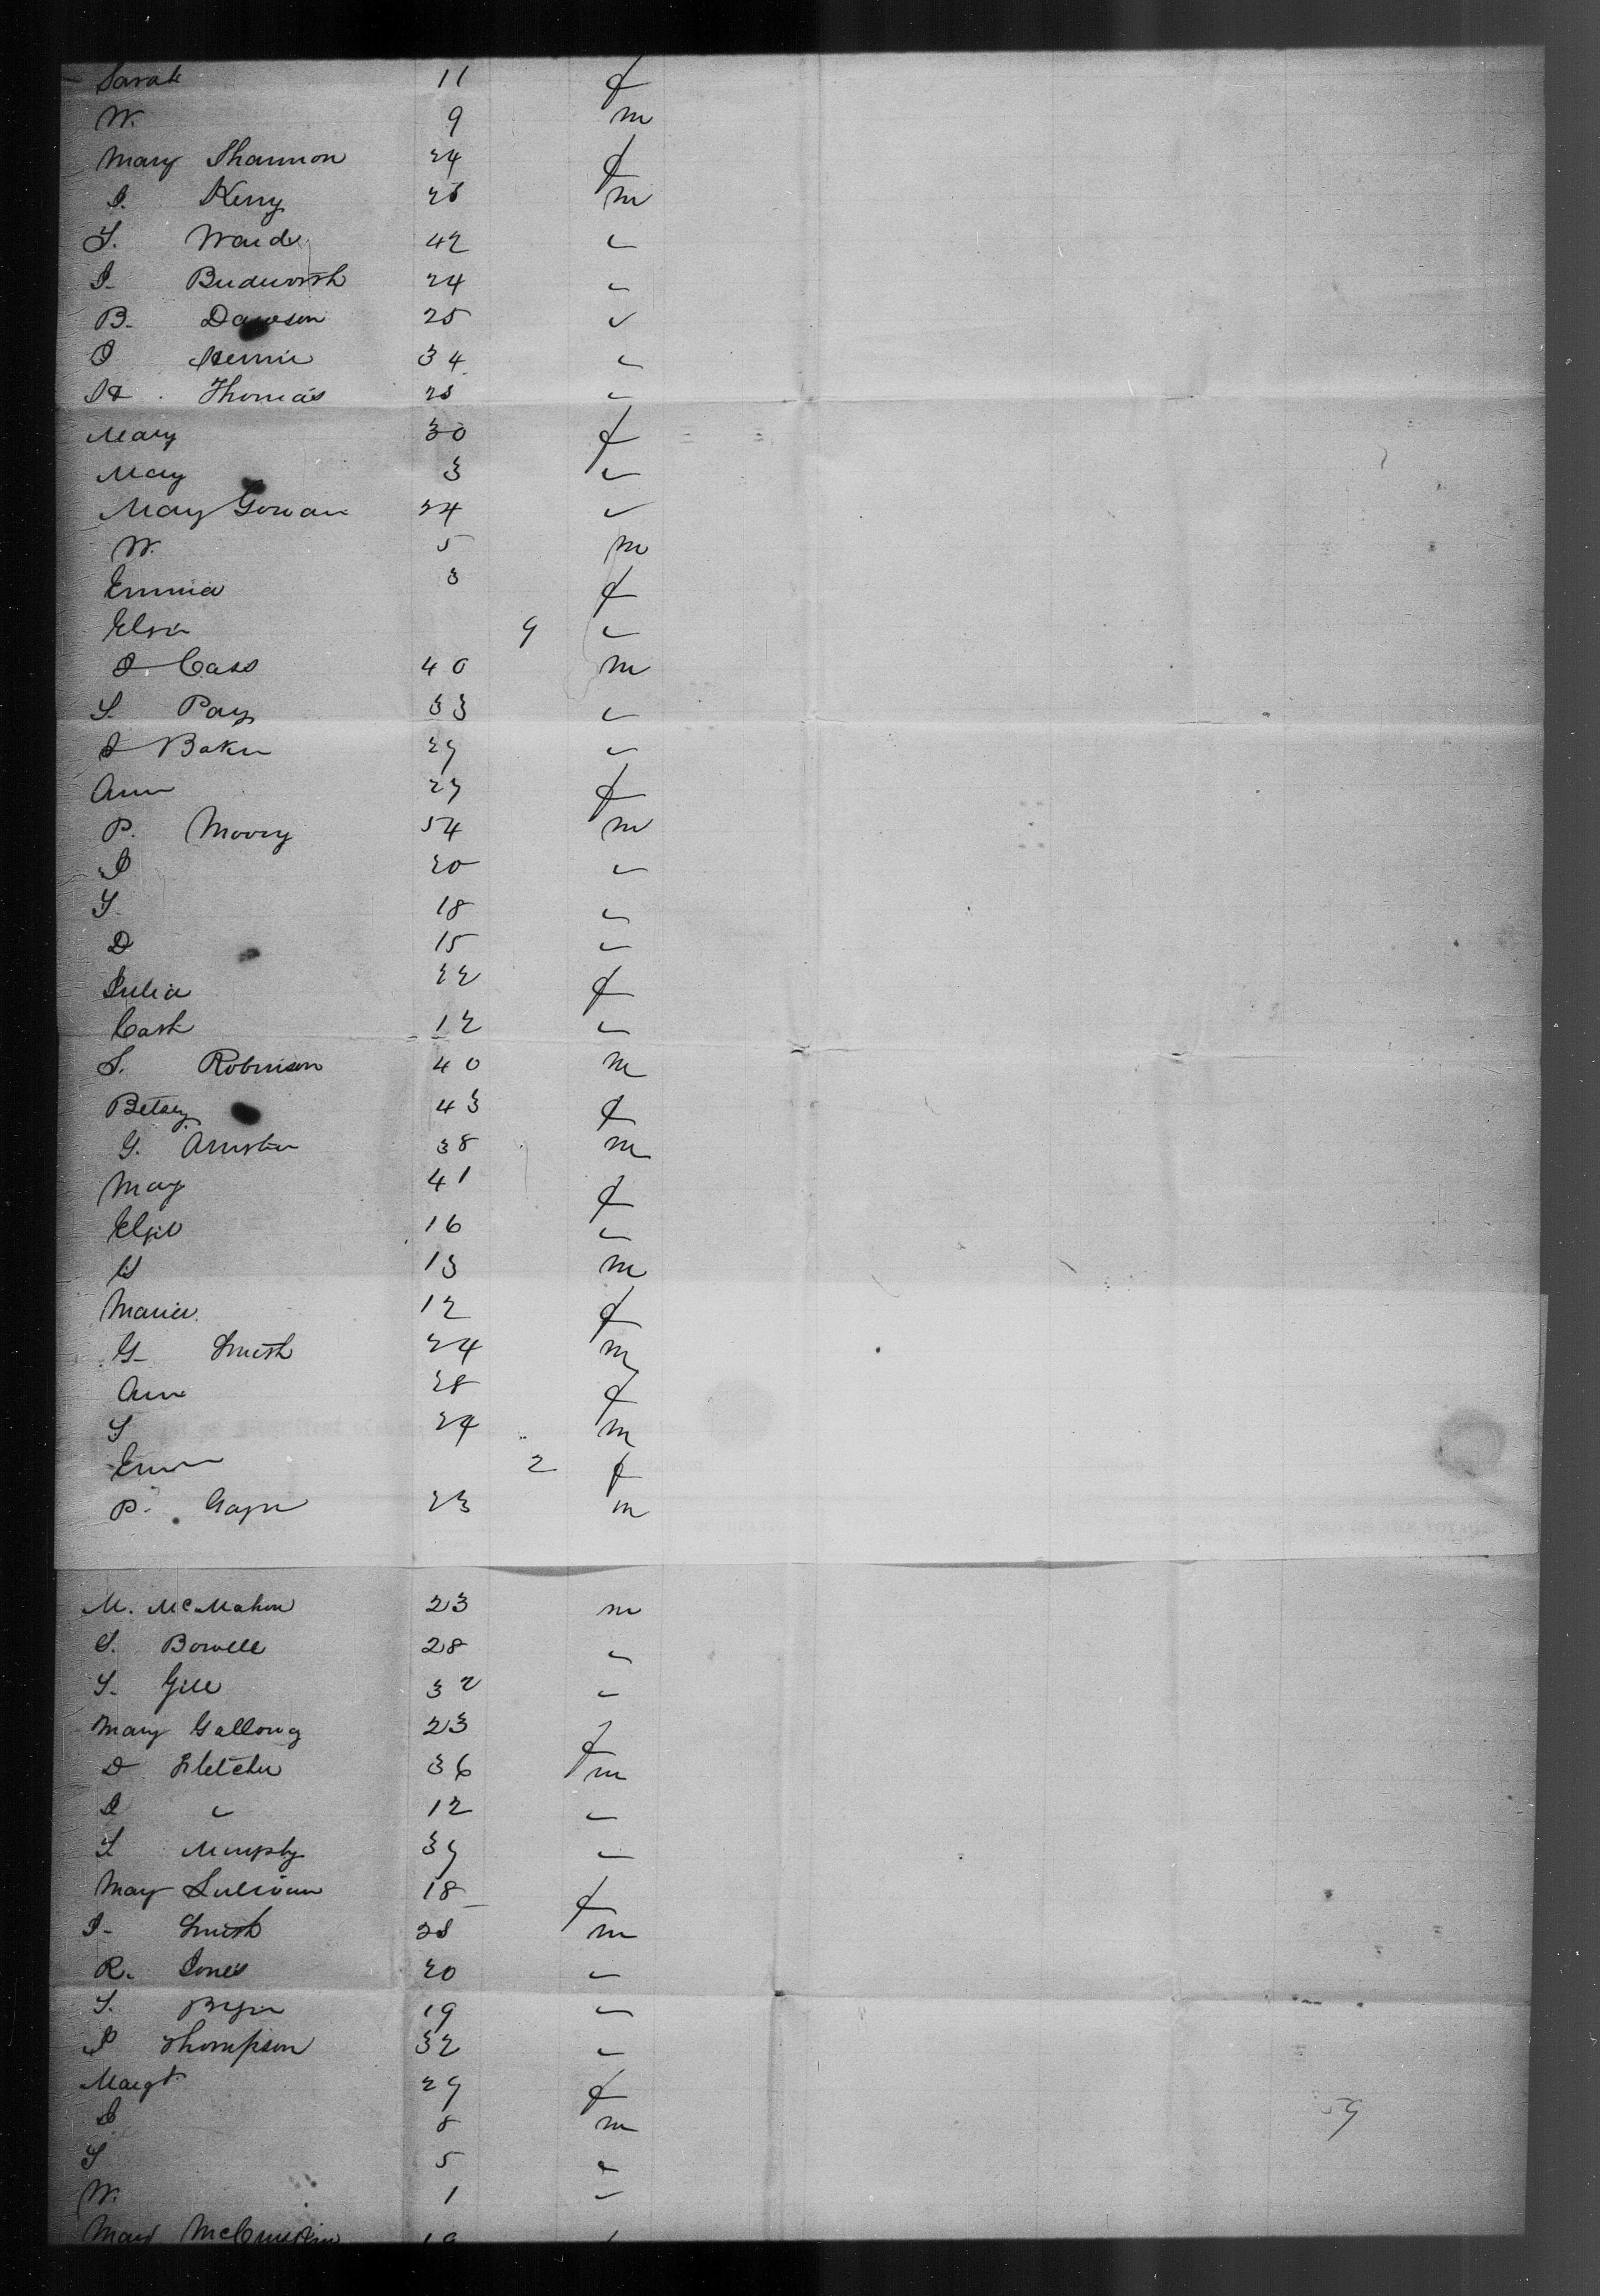 Sarah 11 f
W. 9 m
Mary Shannon 24 f
J. Kerry 28 m
T. Ward 42 "
J. Budworth 24 "
B. Dawson 25 "
J 34 "
H. Thomas 28 "
Mary 30 f
Mary 3 "
Mary Gowan 24 "
W. 5 m
Emma 3 f
9 "
J. Cass 40 m
S. Pay 33 "
J Baker 29 "
Ann 27 f
P. Moory 54 m
J 20 "
T 18 "
D 15 "
Julia 22 f
Cath 12 "
S. Robinson 40 m
Betsey 43 f
G. 38 m
Mary 41 f
16 "
13 m
Maria 12 f
G. Smith 24 m
Ann 28 f
T 24 m
2 f
P. 23 m
M. McMahon 23 m
S. Bowell 28 "
T. Gill 32 "
Mary 23 f
D Fletcher 36 m
J " 12 "
T Murphy 39 "
Mary Sullivan 18 f
J. Smith 28 m
R. Jones 20 "
T. 19 "
J Thompson 32 "
Margt 29 f
J 8 m
T 5 "
W. 1 "
Mary 19
59